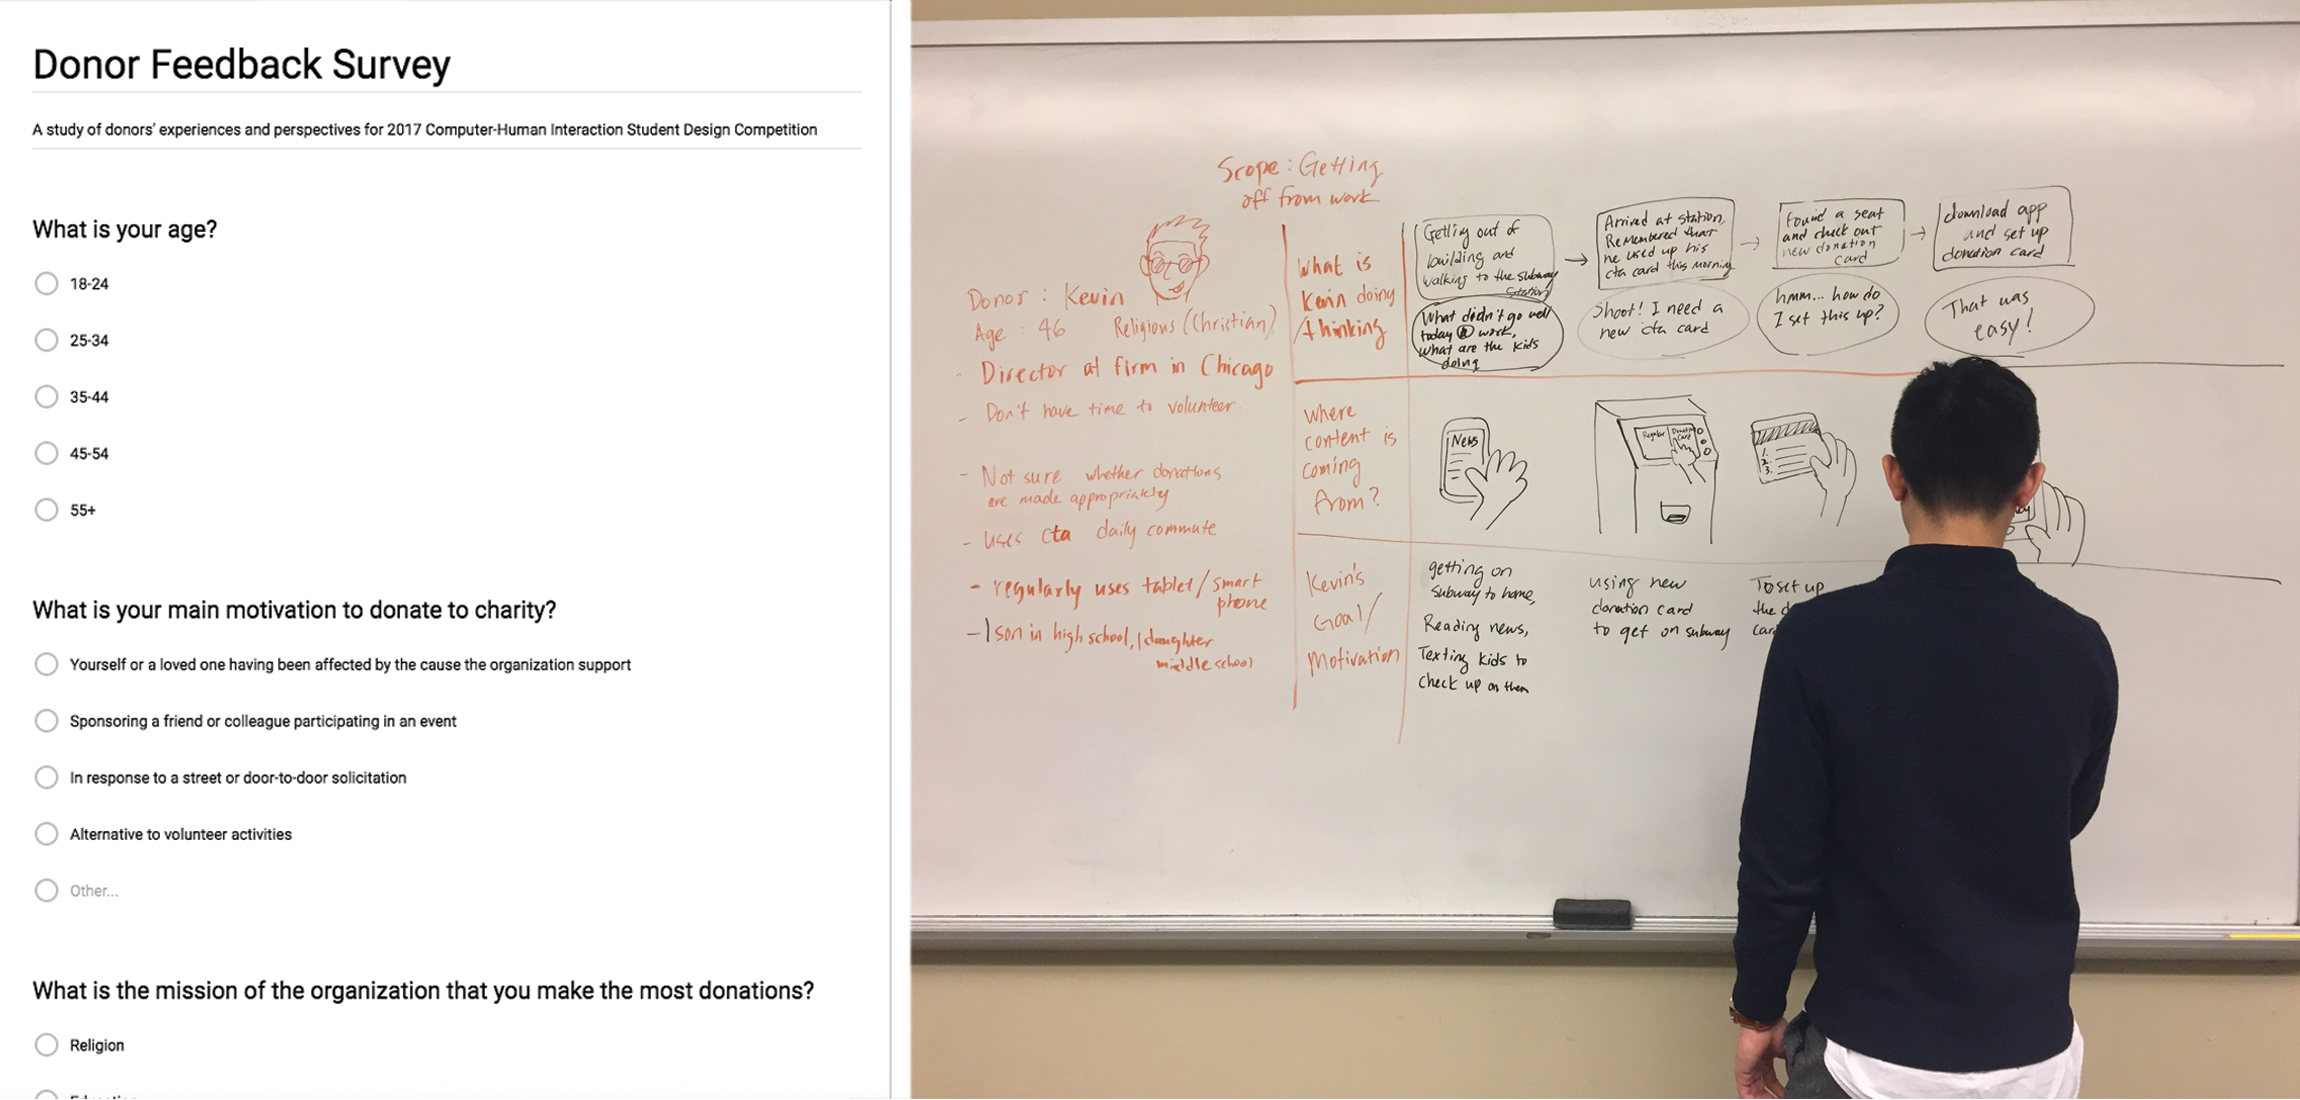 Donor Feedback Survey
A study of donors' experiences and perspectives for 2017 Computer-Human Interaction Student Design Competition
What is your age?
18-24
25-34
35-44
45-54
55+
What is your main motivation to donate to charity?
Yourself or a loved one having been affected by the cause the organization support
Sponsoring a friend or colleague participating in an event
In response to a street or door-to-door solicitation
Alternative to volunteer activities
Other...
What is the mission of the organization that you make the most donations?
Religion
Scope: Getting
off from work
Donor: Kevin
Age: 46 Religious (Christian)
- Director at firm in Chicago
- Don't have time to volunteer.
- Not sure whether donations
are made appropriately
- uses cta daily commute
- regularly uses tablet/smart
phone
- 1 son in high school, 1 daughter
middle school
What is
Kevin doing
/thinking
Getting out of
building and
walking to the subway
station
What didn't go well
today @ work,
what are the kids
doing
Arrived at station,
Remembered that
he used up his
cta card this morning
Shoot! I need a
new cta card
found a seat
and check out
new donation
card
hmm... how do
I set this up?
download app
and set up
donation card
That was
easy!
where
content is
coming
from?
News
Regular
Donation
Card
1.
2.
3.
Kevin's
Goal/
Motivation
getting on
subway to home,
Reading news,
Texting kids to
check up on them
using new
donation card
to get on subway
To set up
the